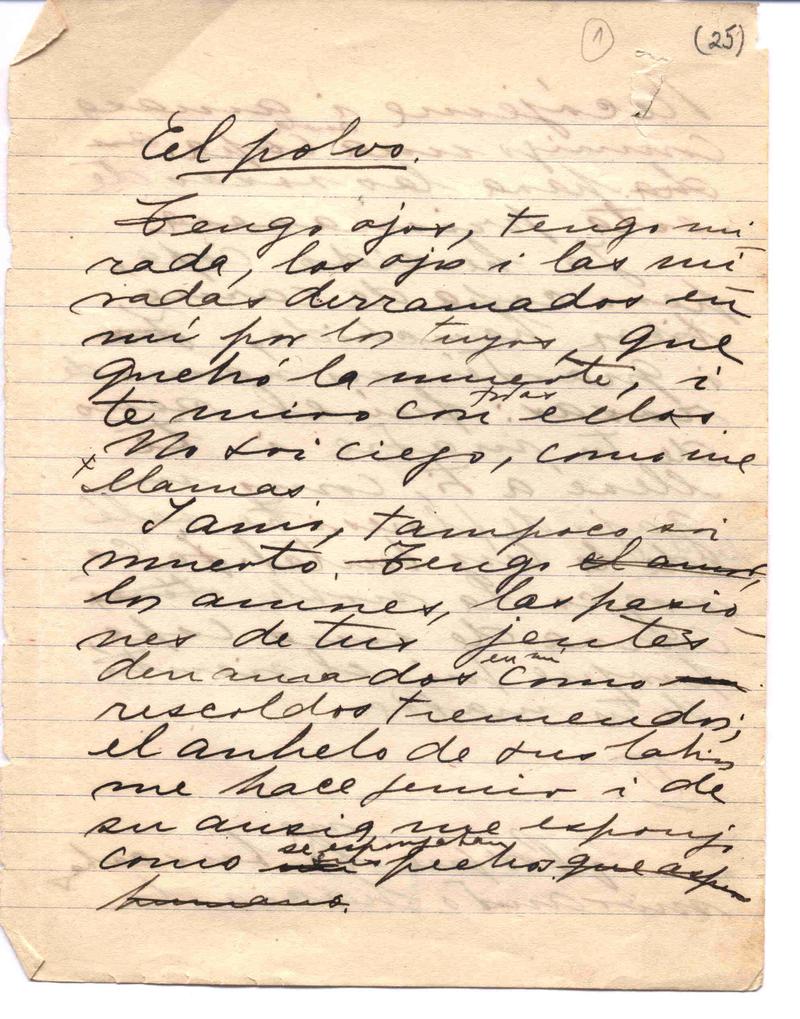 1 (25)
El polvo.
Tengo ojos, tengo mi
rada, los ojos i las mi
radas derramados en
mí por los tuyos, que
quebró la muerte, i
te miro con todas ellas
No soi ciego, como me
x llamas
I amo, tampoco soi
muerto. Tengo el amor,
los amores, las pasio
nes de tus jentes
derramados en mí como
rescoldos tremendos;
el anhelo de sus labios
me hace jemir i de
su ansia me esponjo
como se esponjaban sus pechos que
humano.